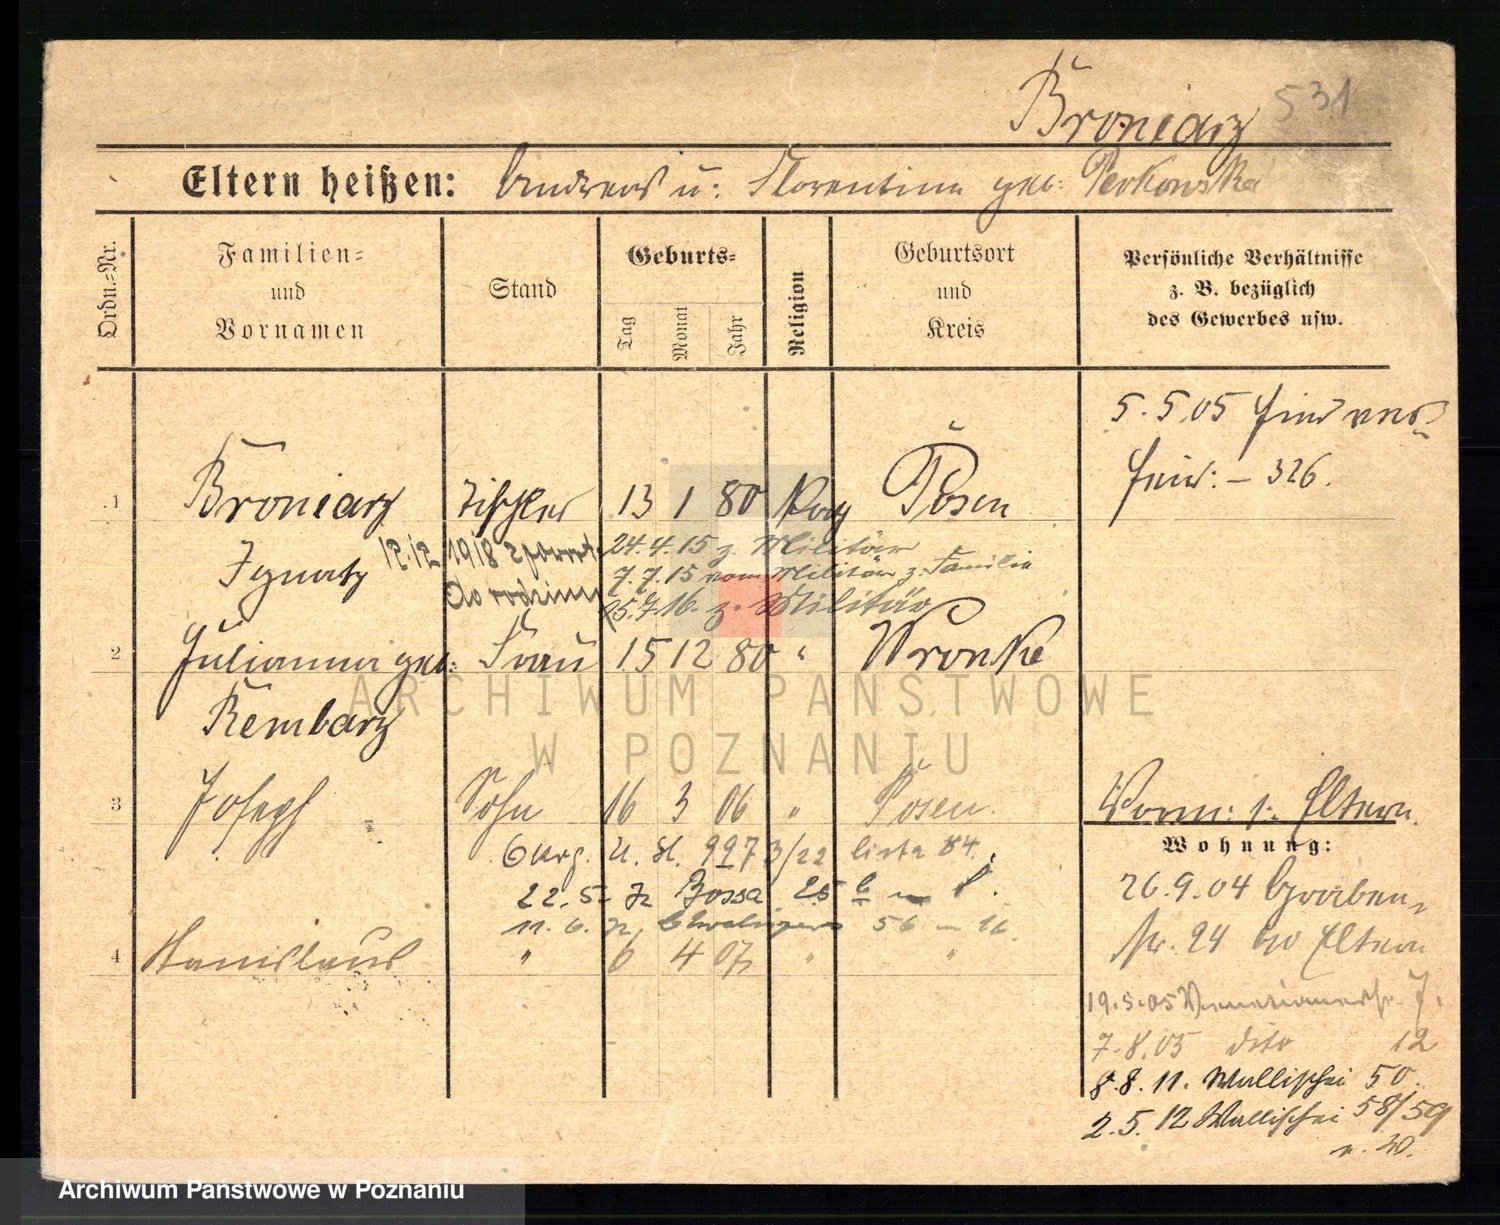 Broniarz 531
Eltern heißen: Andreas u: Florentina geb: Perkowska
Ordn.=Nr.
Familien=
und
Vornamen
Stand
Geburts=
Tag
Monat
Jahr
Religion
Geburtsort
und
Kreis
Persönliche Verhältnisse
z. B. bezüglich
des Gewerbes usw.
5. 5. 05
326.
1 Broniarz Tischler 13 1 80 Posen
Ignatz 12.12 1918 z powrot.
do rodziny
24. 4. 15 z. Militär
7. 7. 15 vom Militär z. Familie
25. 7. 16. z. Militär
2 Julianna geb: Frau 15 12 80 " Wronke
Rembarz
3 Joseph Sohn 16 3 06 " Posen.
Vorm: s. Eltern.
Wohnung:
997 3/22 lista 84.
22. 5.
11. 6. 56
4 Stanislaus " 6 4 07 " "
26. 9. 04 Graben
Nr. 24 bei Eltern
19. 5. 05 Venetianerstr. 7.
7. 8. 05 dito 12
8. 8. 11. Wallischei 50.
2. 5. 12 Wallischei 58/59
ARCHIWUM PAŃSTWOWE
W POZNANIU
Archiwum Państwowe w Poznaniu